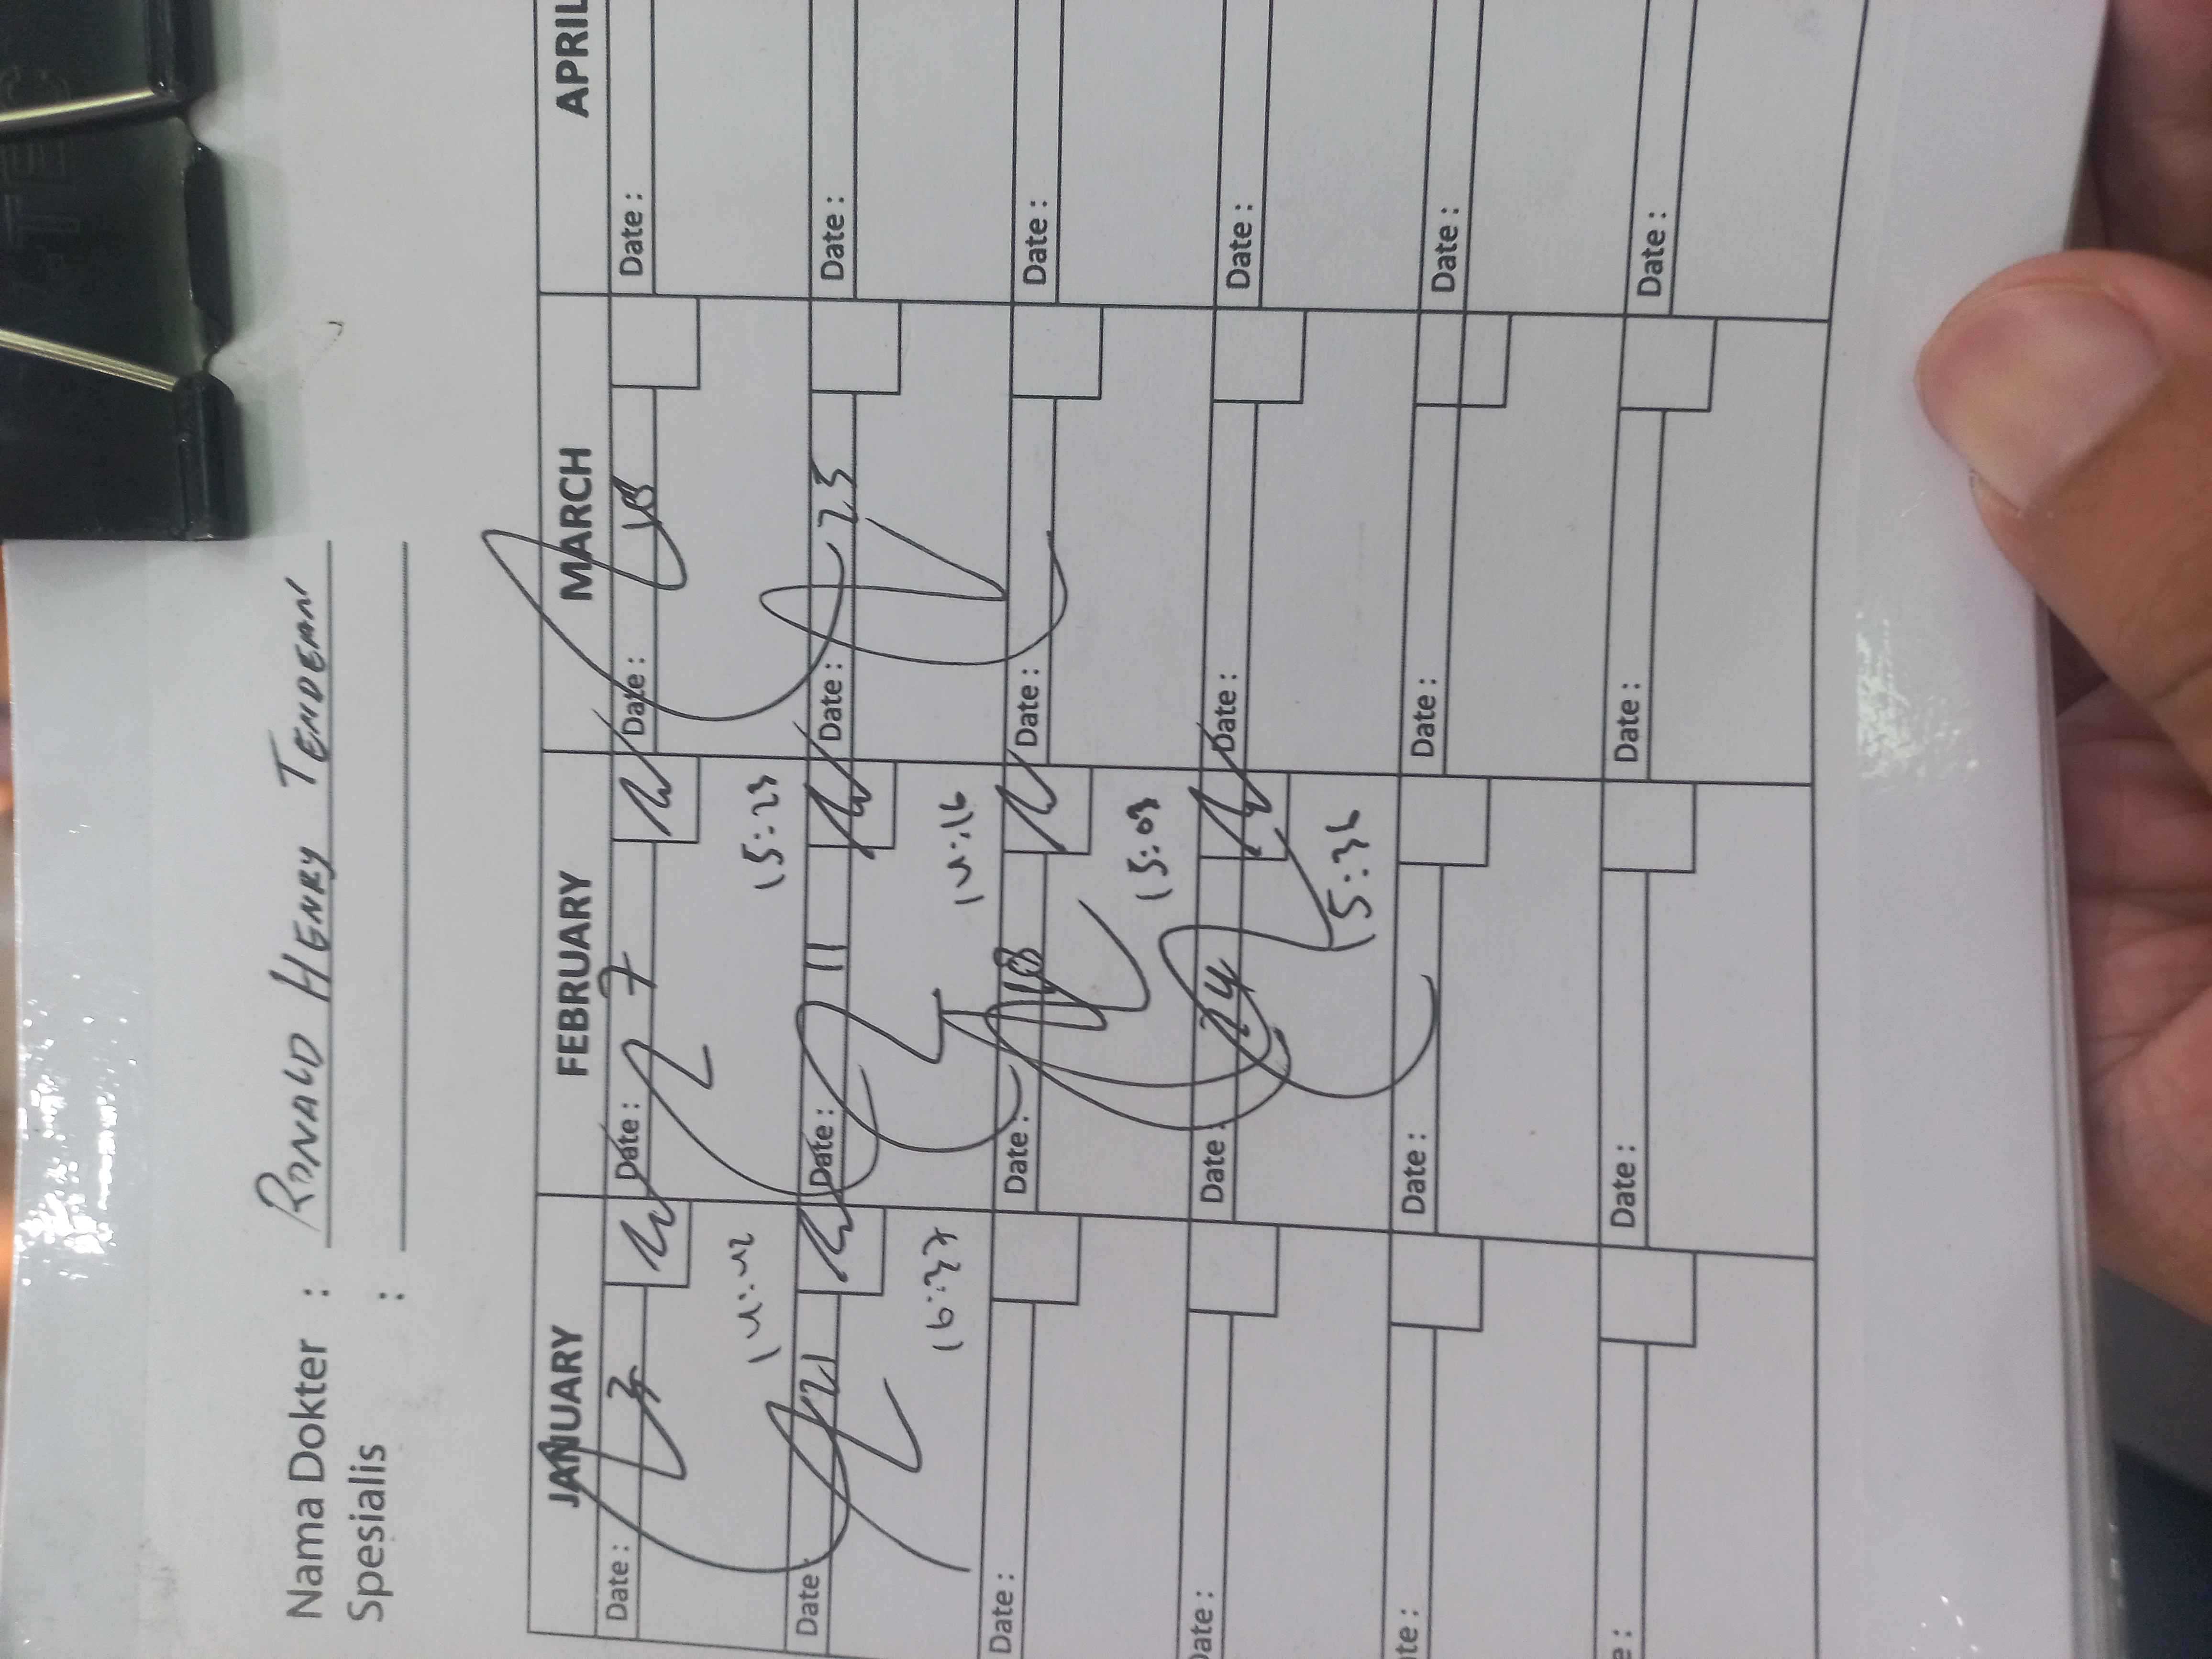 Nama Dokter : RONALD HENRY TENDEAN
Spesialis :
JANUARY FEBRUARY MARCH APRIL
Date : 3 Date : 7 Date : Date :
15:23
Date : 21 Date : 11 Date : 23 Date :
16:37
Date : Date : 18 Date : Date :
15:03
Date : Date : 24 Date : Date :
15:36
Date : Date : Date : Date :
Date : Date : Date :